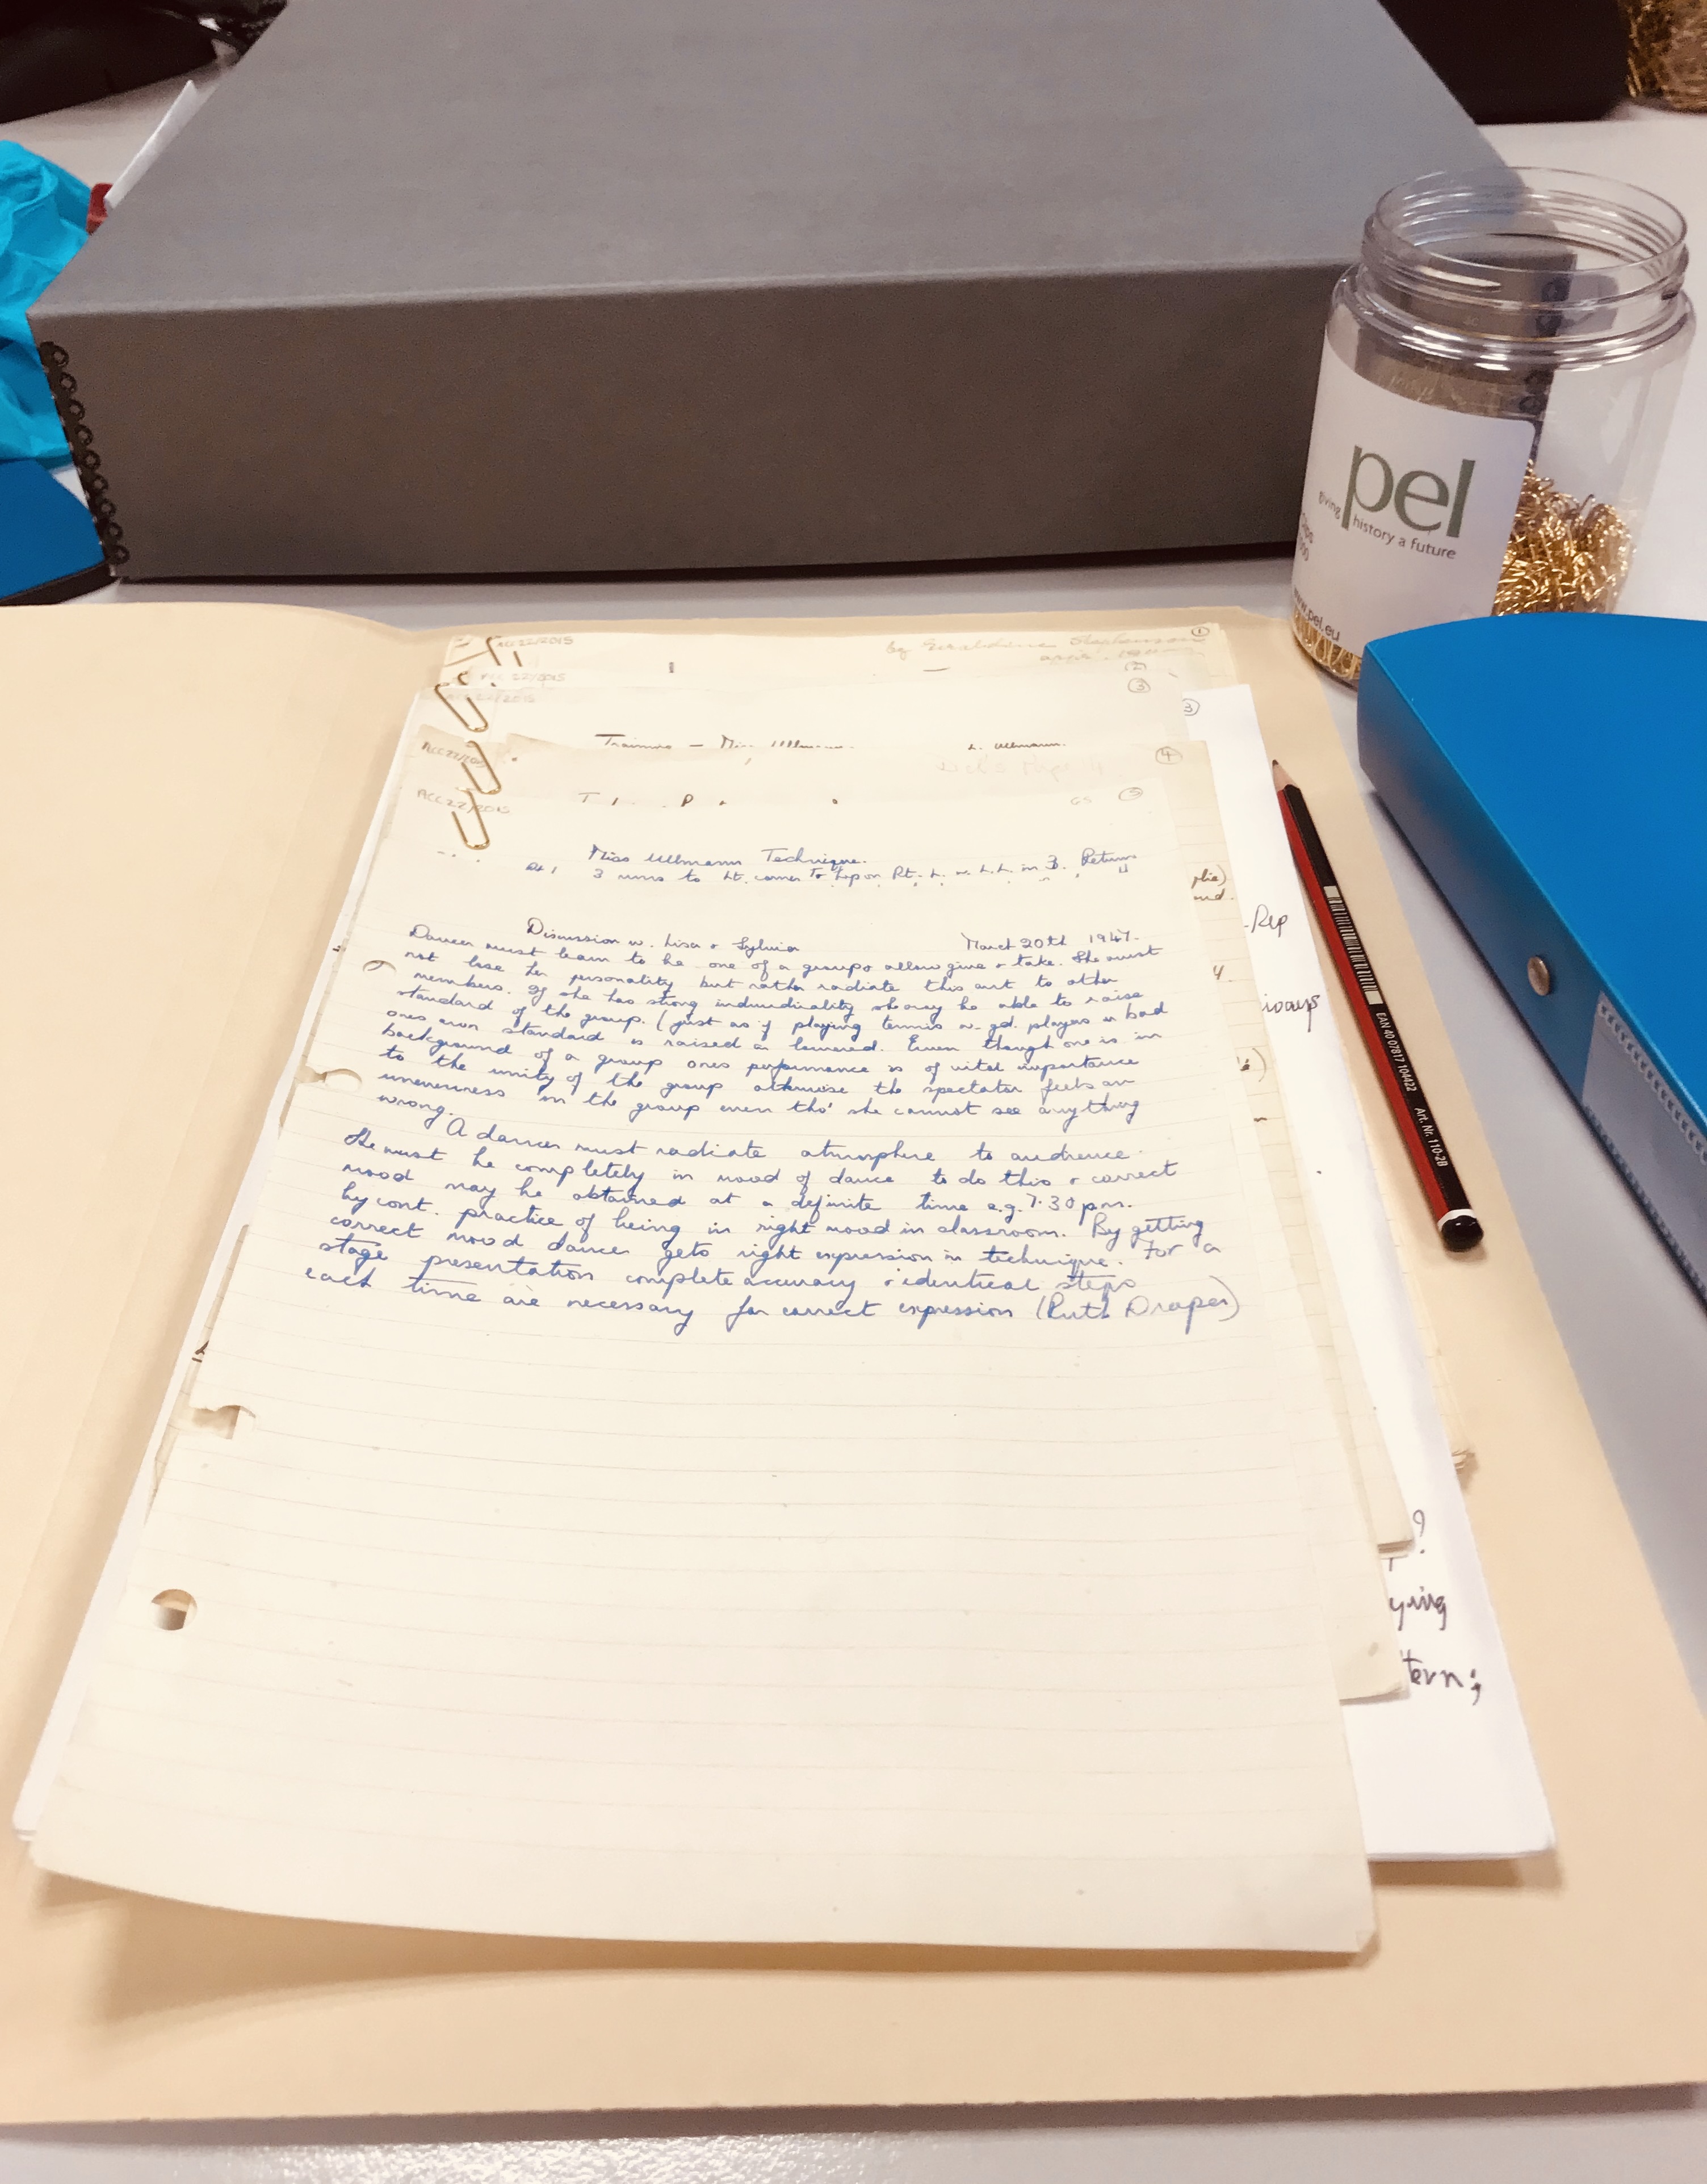 ACC 22/2015
by Geraldine Stephenson
①
ACC 22/2015
②
22/2015
③
③
Training – Miss Ullmann.
L. Ullmann.
ACC 22/2015
④
ACC 22/2015
GS
⑤
Miss Ullmann Technique.
3 runs to Lt. corner to hop on Rt. L. R. L. L. in 3. Return
Discussion w. Lisa + Sylvia
March 20th 1947.
Dancer must learn to be one of a group + allow give + take. She must
not lose her personality but rather radiate this out to other
members. If she has strong individuality she may be able to raise
standard of the group. (just as if playing tennis w. gd. players or bad
ones own standard is raised or lowered. Even though one is in
background of a group ones performance is of vital importance
to the unity of the group otherwise the spectator feels an
unevenness in the group even tho' she cannot see anything
wrong.
A dancer must radiate atmosphere to audience.
He must be completely in mood of dance to do this + correct
mood may be obtained at a definite time e.g. 7.30 pm.
by cont. practice of being in right mood in classroom. By getting
correct mood dancer gets right expression in technique. For a
stage presentation complete accuracy + identical steps
each time are necessary for correct expression (Ruth Draper)
plie)
and.
Rep
4.
?
ying
tern;
pel
giving history a future
www.pel.eu
EAN 40 07817 104422 Art. Nr. 110-2B